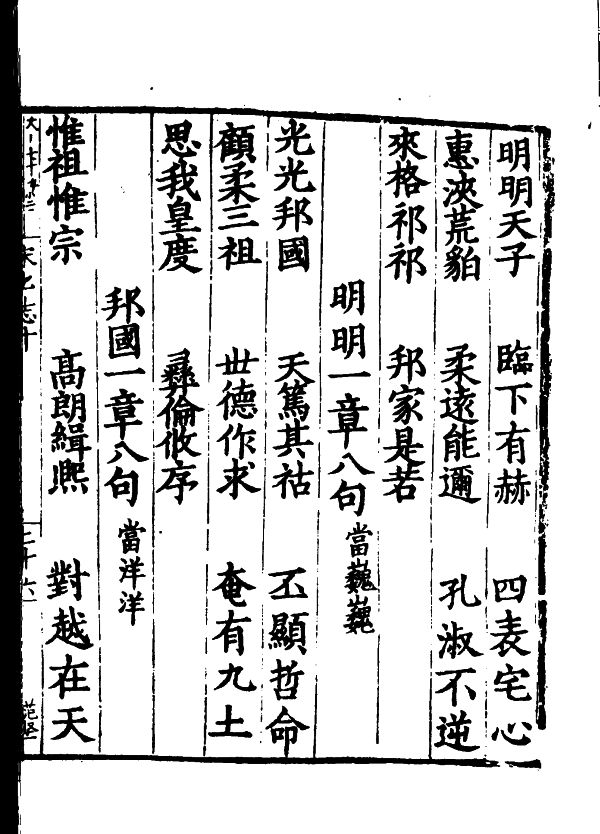 明明天子 臨下有赫 四表宅心
惠浹荒貊 柔遠能邇 孔淑不逆
來格祁祁 邦家是若
明明一章八句 當巍巍
光光邦國 天篤其祜 丕顯哲命
顧柔三祖 世德作求 奄有九土
思我皇度 彝倫攸序
邦國一章八句 當洋洋
惟祖惟宗 高朗緝熙 對越在天
宋樂志十
二十六